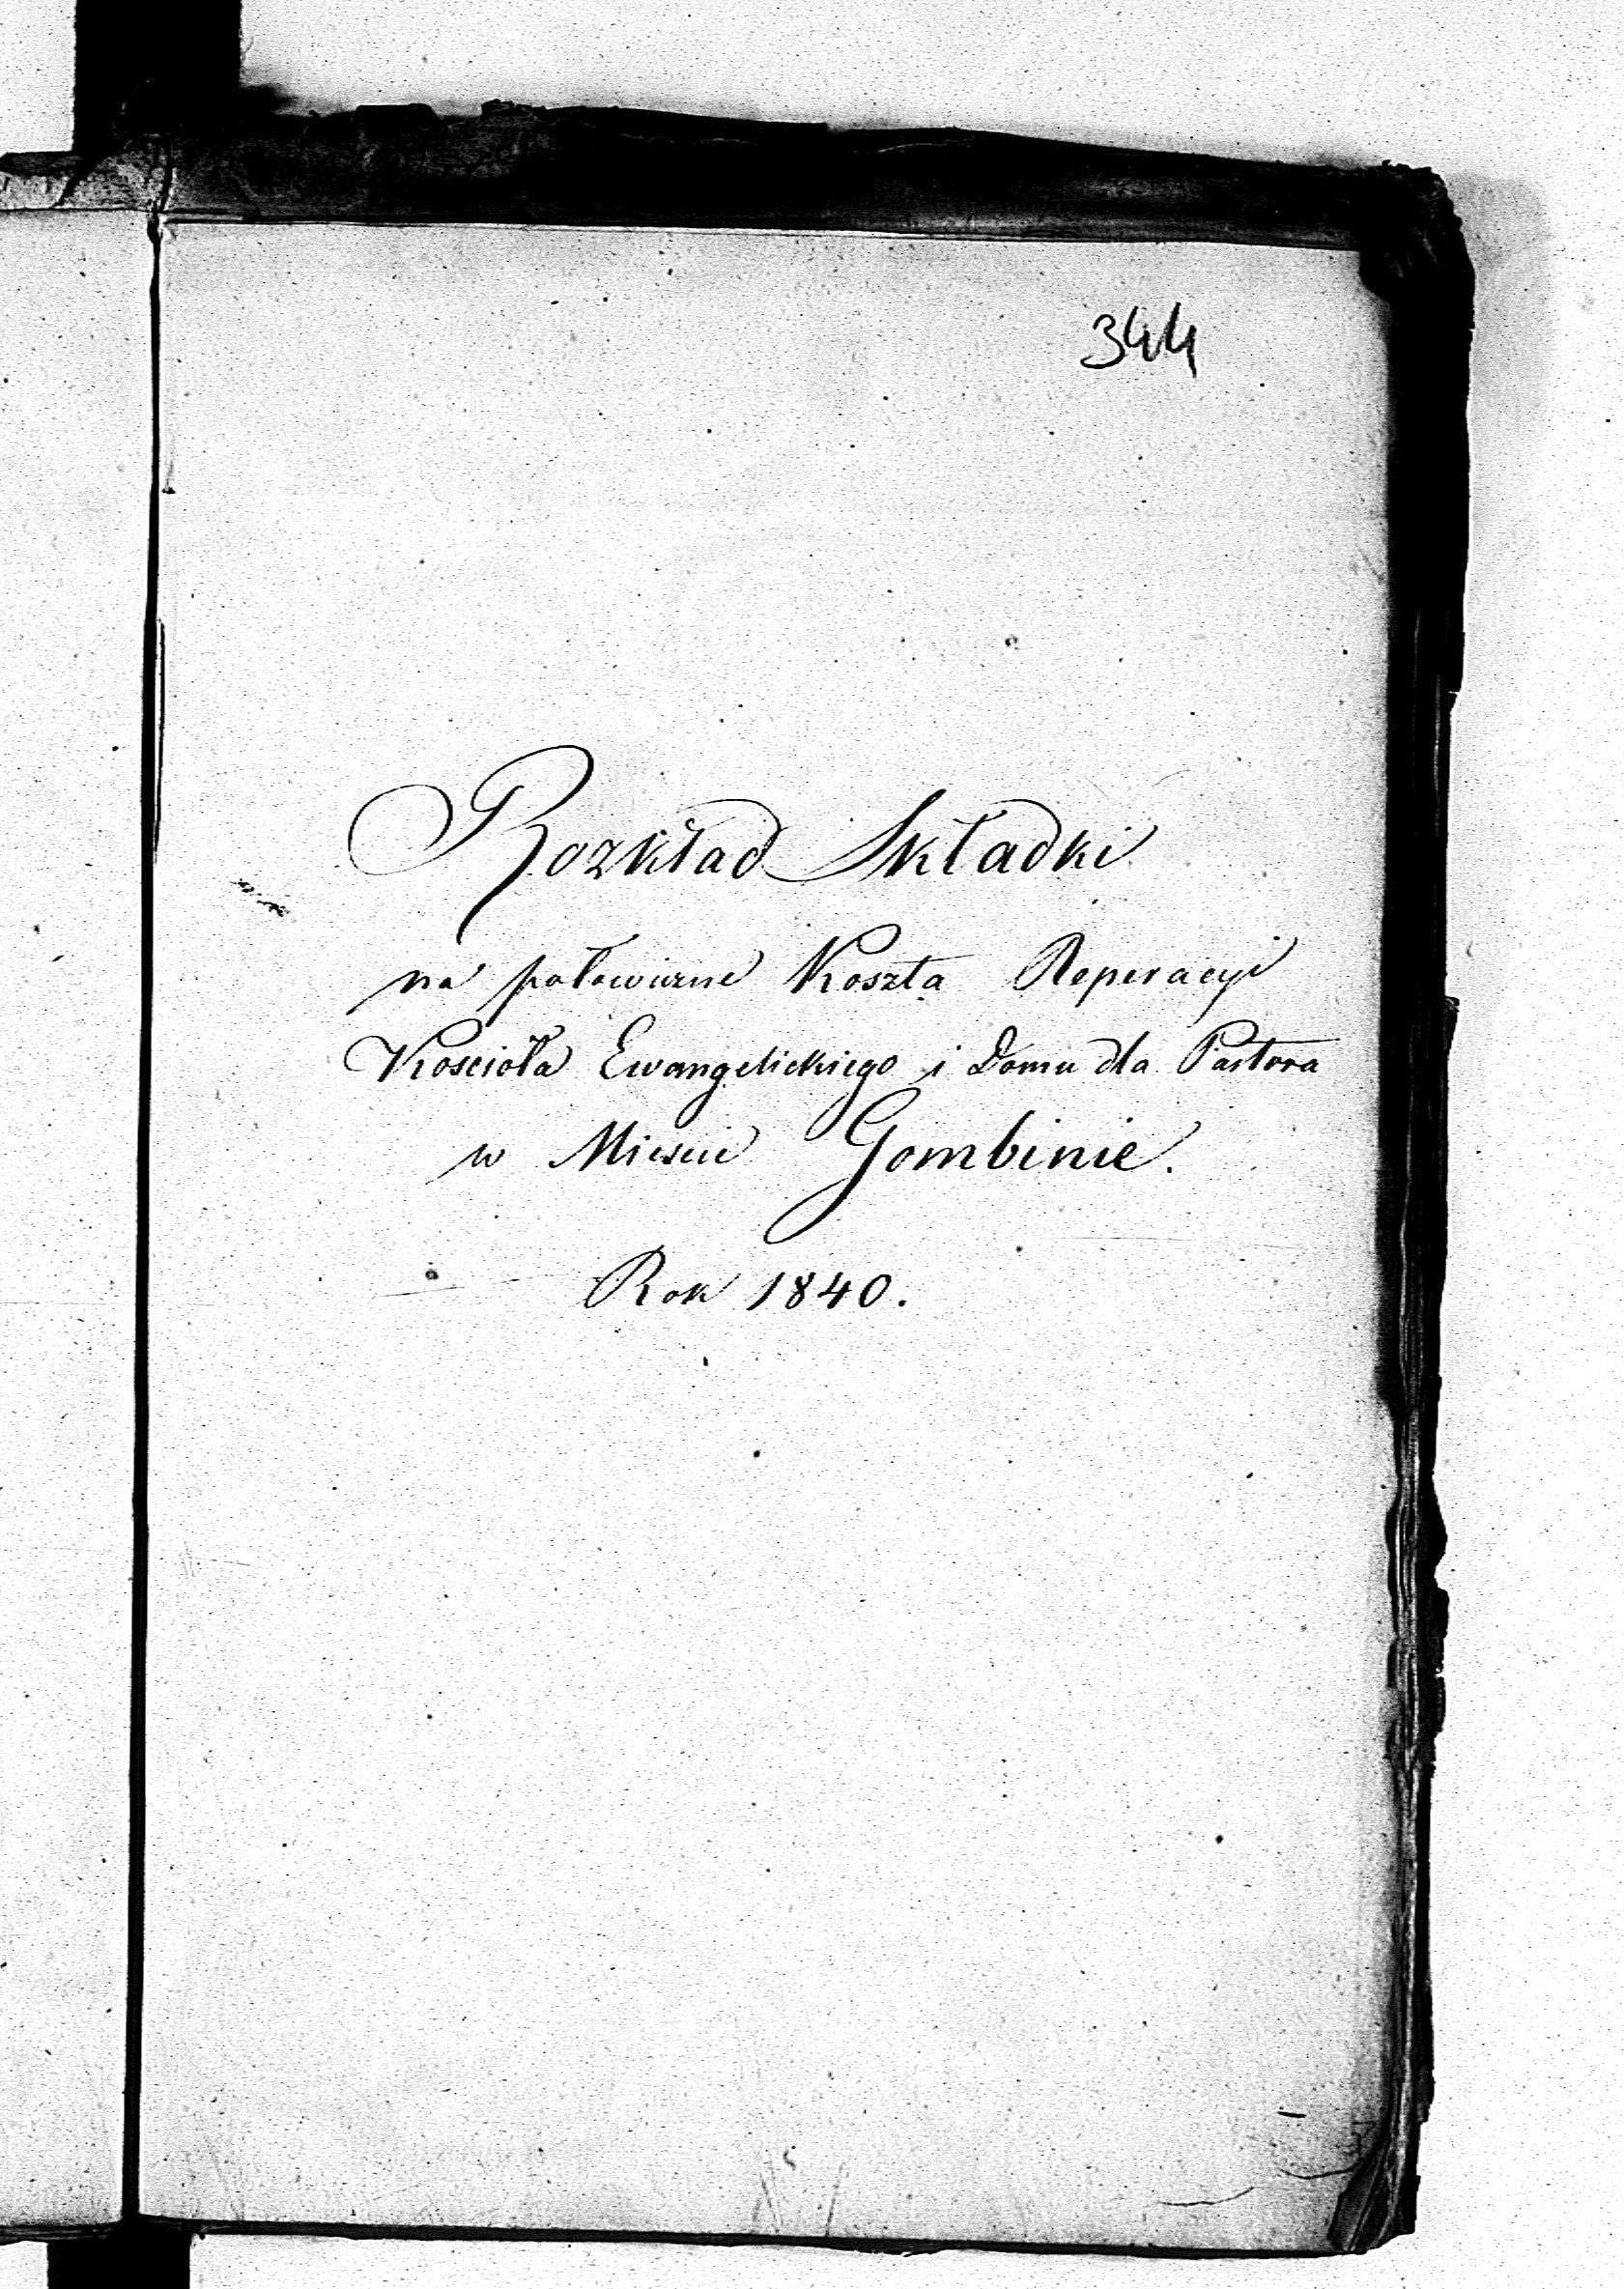 344
Rozkład Składki
na połowiczne Koszta Reperacyi
Kościoła Ewangelickiego i Domu dla Pastora
w Mieście Gombinie.
Rok 1840.